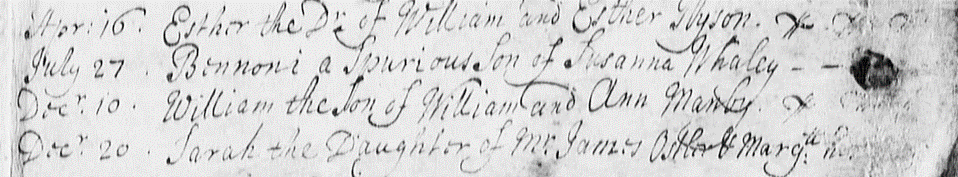 Apr: 16. Esther the Dr. of William and Esther Glyson.
July 27. Bennoni a Spurious Son of Susanna Whaley - -
Decr. 10. William the Son of William and Ann Manby.
Decr. 20. Sarah the Daughter of Mr. James Ostler & Margtt